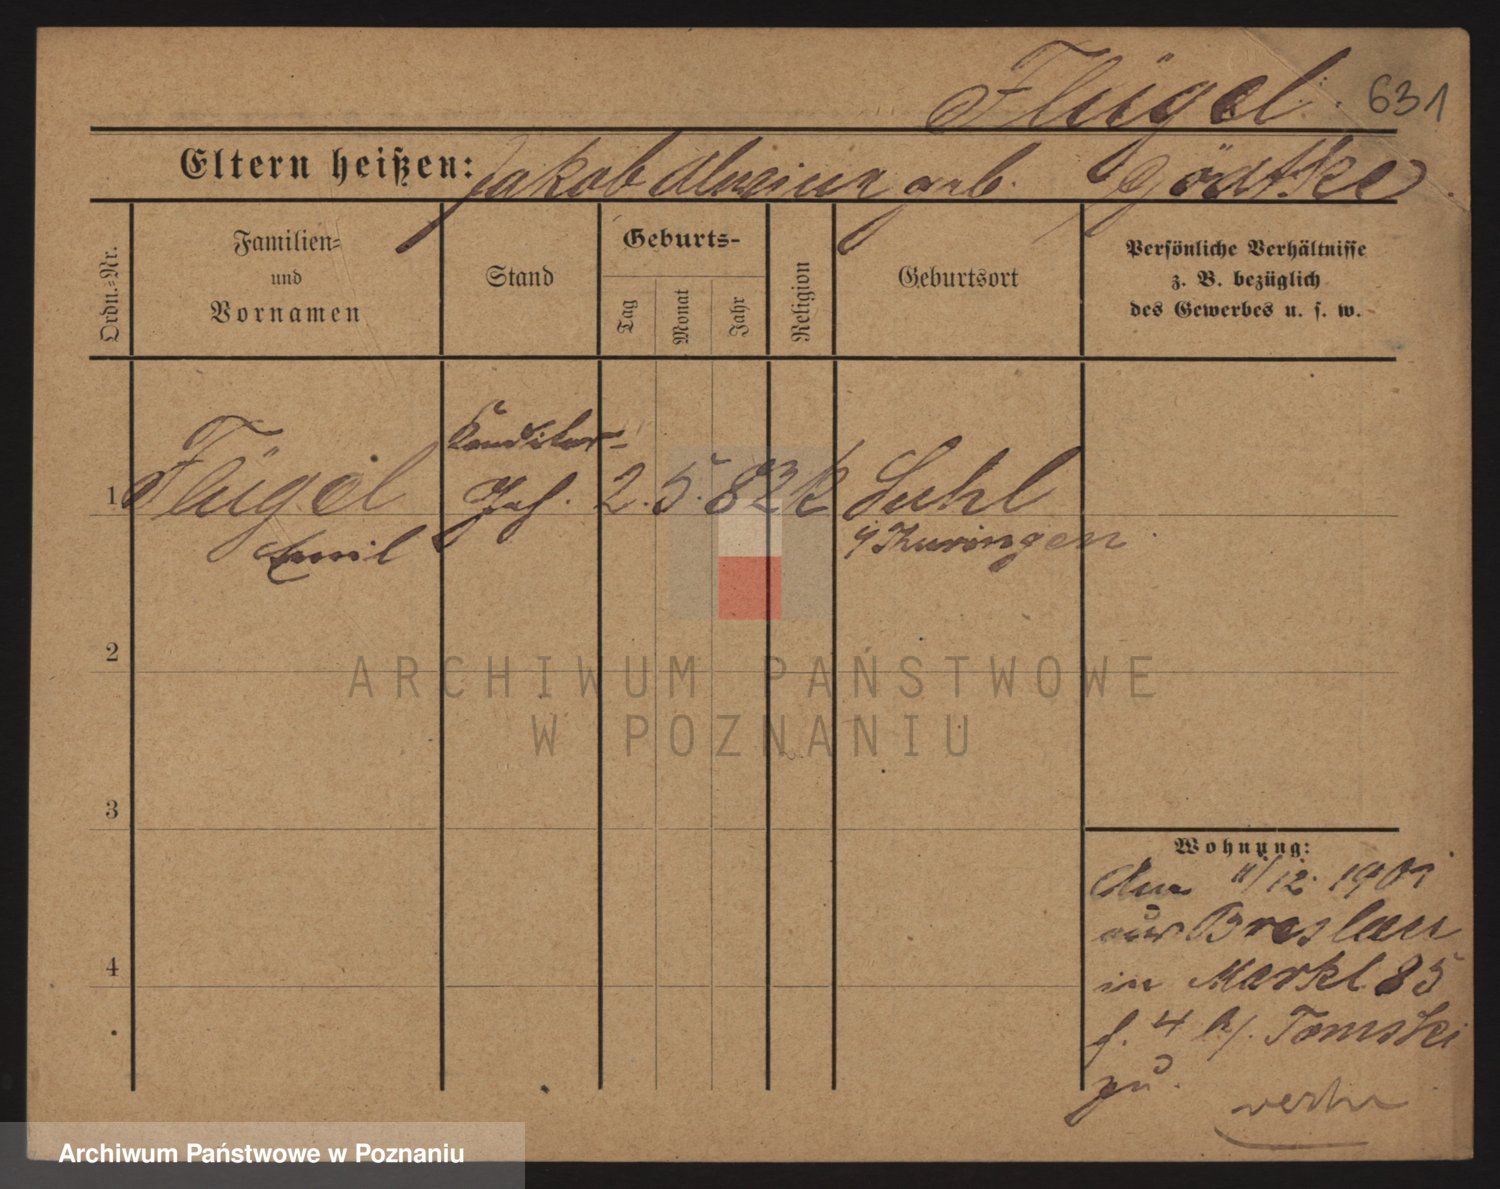 Flügel. 631
Eltern heißen: Jakob geb. Gödtke.
Ordn.=Nr.
Familien=
und
Vornamen
Stand
Geburts-
Tag
Monat
Jahr
Religion
Geburtsort
Persönliche Verhältnisse
z. B. bezüglich
des Gewerbes u. s. w.
Konditor-
1 Flügel Geh. 2. 5. 82 k Suhl
Emil i/Thuringen
2
ARCHIWUM PAŃSTWOWE
W POZNANIU
3
4
Wohnung:
den 11/12. 1901
aus Breslau
in Markt 85
h. 4 b/. Tomski
zu.
Archiwum Państwowe w Poznaniu